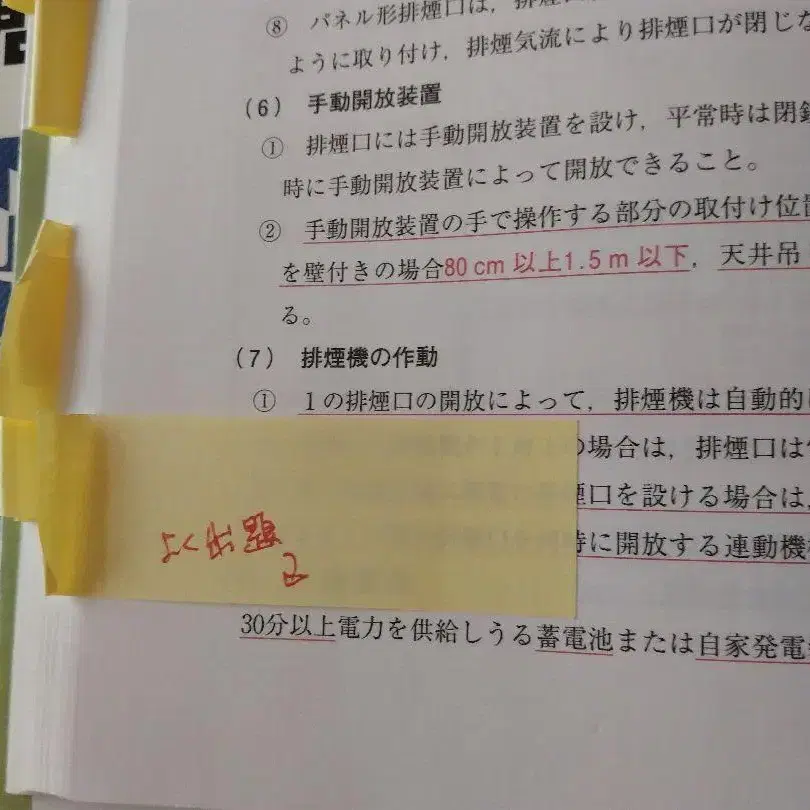 ⑧ パネル形排煙口は，排煙
ように取り付け，排煙気流により排煙口が閉じな
(6) 手動開放装置
① 排煙口には手動開放装置を設け，平常時は閉鎖
時に手動開放装置によって開放できること。
② 手動開放装置の手で操作する部分の取付け位置
を壁付きの場合80 cm 以上1.5 m 以下，天井吊
る。
(7) 排煙機の作動
① 1の排煙口の開放によって，排煙機は自動的
の場合は，排煙口は
煙口を設ける場合は，
時に開放する連動機
よく出題
30分以上電力を供給しうる蓄電池または自家発電